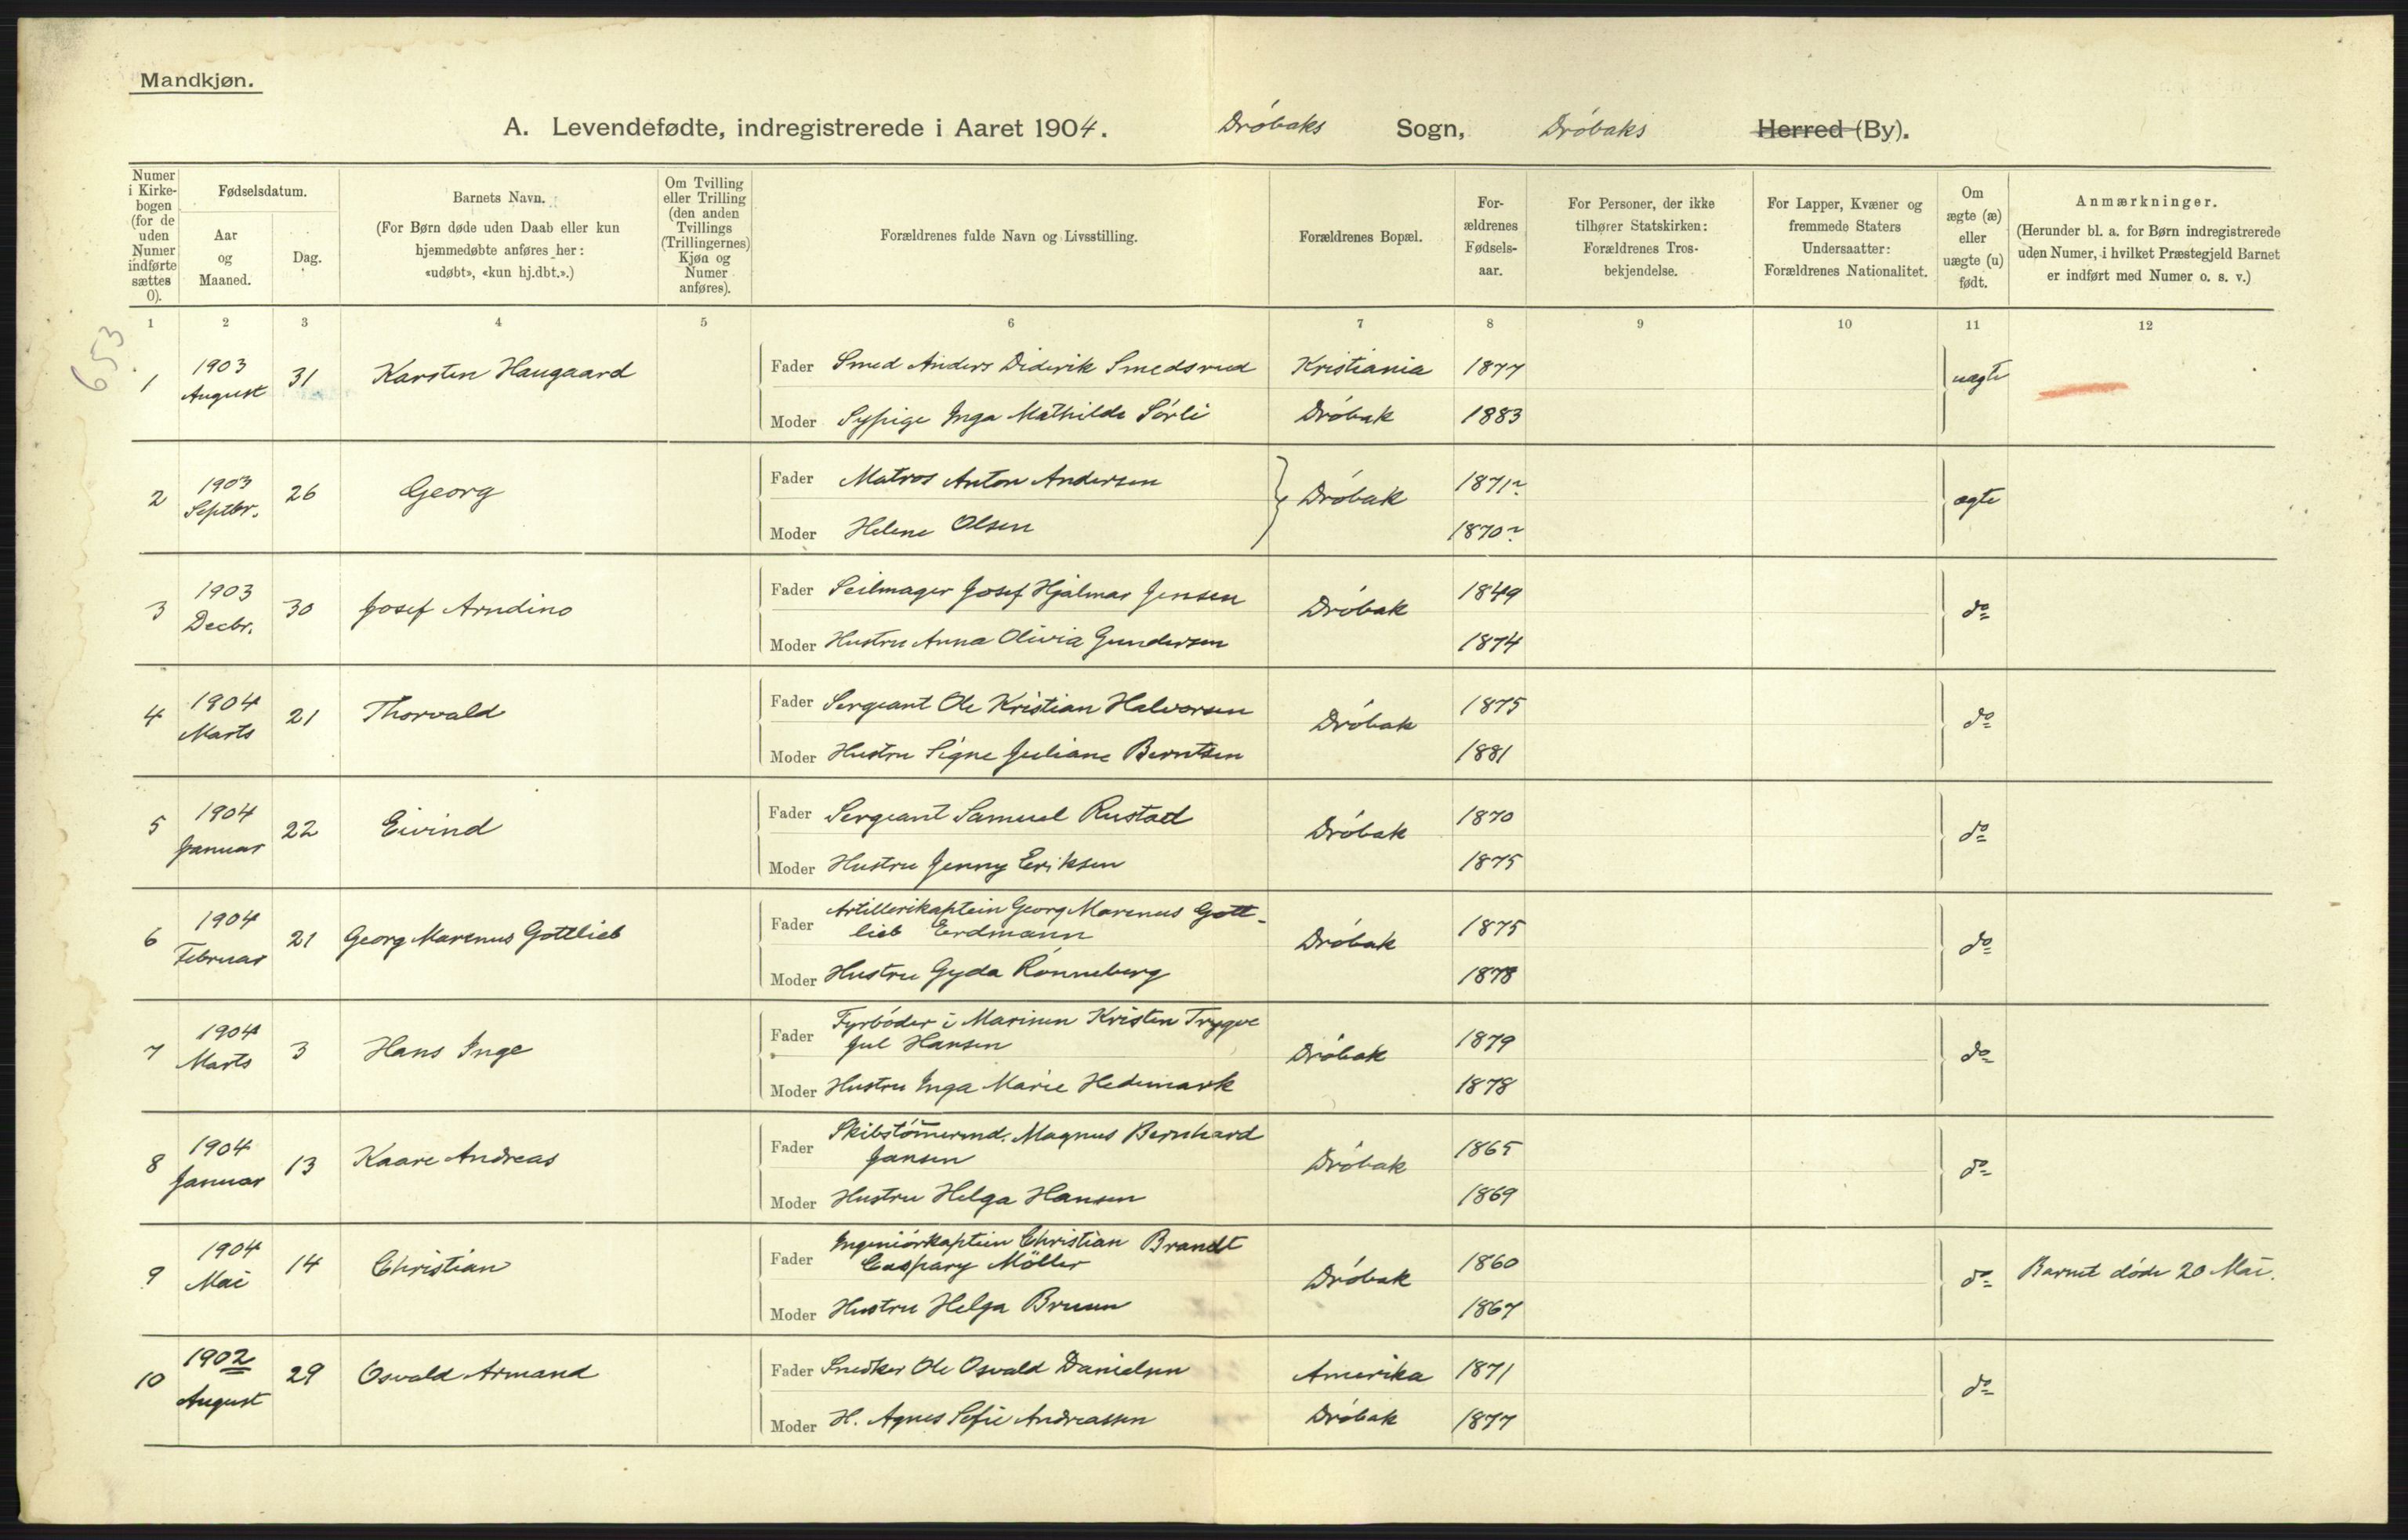 Mandkjøn.
A. Levendefødte, indregistrerede i Aaret 1904. Drøbaks Sogn, Drøbaks Herred (By).
Numer i Kirkebogen (for de uden Numer indførte sættes 0).
Fødselsdatum.
Aar og Maaned.
Dag.
Barnets Navn.
(For Børn døde uden Daab eller kun hjemmedøbte anføres her: «udøbt», «kun hj.dbt.».)
Om Tvilling eller Trilling (den anden Tvillings (Trillingernes) Kjøn og Numer anføres).
Forældrenes fulde Navn og Livsstilling.
Forældrenes Bopæl.
Forældrenes Fødselsaar.
For Personer, der ikke tilhører Statskirken: Forældrenes Trosbekjendelse.
For Lapper, Kvæner og fremmede Staters Undersaatter: Forældrenes Nationalitet.
Om ægte (æ) eller uægte (u) født.
Anmærkninger.
(Herunder bl. a. for Børn indregistrerede uden Numer, i hvilket Præstegjeld Barnet er indført med Numer o. s. v.)
1 2 3 4 5 6 7 8 9 10 11 12
653
1 1903 August 31 Karsten Haugaard
Fader Smed Anders Diderik Smedsrud Kristiania 1877 uægte
Moder Sypige Inga Mathilde Sørli Drøbak 1883
2 1903 Septbr. 26 Georg
Fader Matros Anton Andersen Drøbak 1871? ægte
Moder Helene Olsen 1870?
3 1903 Decbr. 30 Josef Arndino
Fader Seilmager Josef Hjalmar Jensen Drøbak 1849 do
Moder Hustru Anna Olivia Gundersen 1874
4 1904 Marts 21 Thorvald
Fader Sergeant Ole Kristian Halvorsen Drøbak 1875 do
Moder Hustru Signe Juliane Berntsen 1881
5 1904 Januar 22 Eivind
Fader Sergeant Samuel Rustad Drøbak 1870 do
Moder Hustru Jenny Eriksen 1875
6 1904 Februar 21 Georg Marenus Gottlieb
Fader Artillerikaptein Georg Marenus Gott-
lieb Erdmann Drøbak 1875 do
Moder Hustru Gyda Rønneberg 1878
7 1904 Marts 3 Hans Inge
Fader Fyrbøder i Marinen Kristen Trygve
Jul Hansen Drøbak 1879 do
Moder Hustru Inga Marie Hedemark 1878
8 1904 Januar 13 Kaare Andreas
Fader Skibstømermd. Magnus Bernhard
Jansen Drøbak 1865 do
Moder Hustru Helga Hansen 1869
9 1904 Mai 14 Christian
Fader Ingeniørkaptein Christian Brandt
Caspary Møller Drøbak 1860 do Barnet døde 20 Mai.
Moder Hustru Helga Bruun 1867
10 1902 August 29 Osvald Armand
Fader Snedker Ole Osvald Danielsen Amerika 1871 do
Moder H. Agnes Sofie Andreassen Drøbak 1877